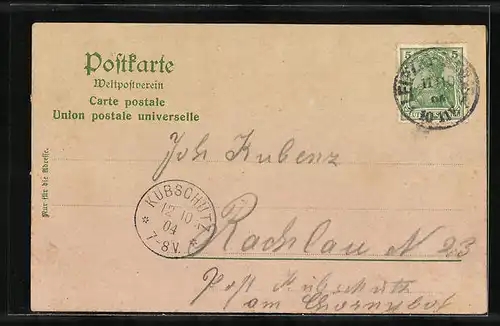 Postkarte
Weltpostverein
Carte postale
Union postale universelle
5 5
Nur für die Adresse.
Joh Kubenz
KUBSCHÜTZ
12 10
04
7-8V.
* *
Rachlau N 23
Post Kubschütz
am Chornyboh